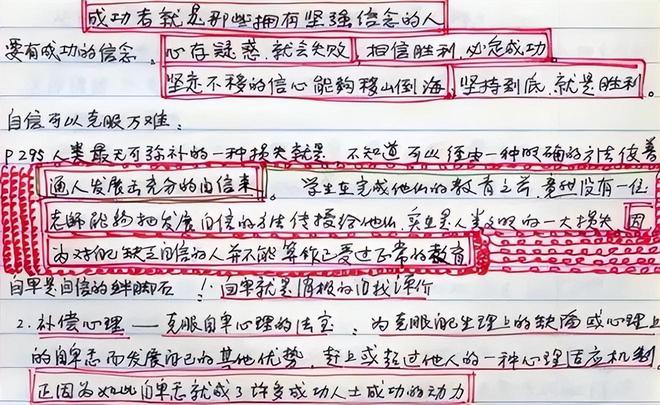 成功者就是那些拥有坚强信念的人
要有成功的信念。心存疑惑,就会失败,相信胜利,必定成功。
坚定不移的信心能够移山倒海,坚持到底,就是胜利。
自信可以克服万难:
P295 人类最无可弥补的一种损失就是,不知道可以经由一种明确的方法使普
通人发展出充分的自信来。学生在完成他们的教育之前,竟然没有一位
老师能够把发展自信的方法传授给他们,实在是人类文明的一大损失,因
为对自己缺乏自信的人并不能算作已受过正常的教育
自卑是自信的绊脚石 ! 自卑就是消极的自我评价
2. 补偿心理 — 克服自卑心理的法宝:为克服自己生理上的缺陷或心理上
的自卑感而发展自己的其他优势,赶上或超过他人的一种心理适应机制。
正因为如此自卑感就成了许多成功人士成功的动力